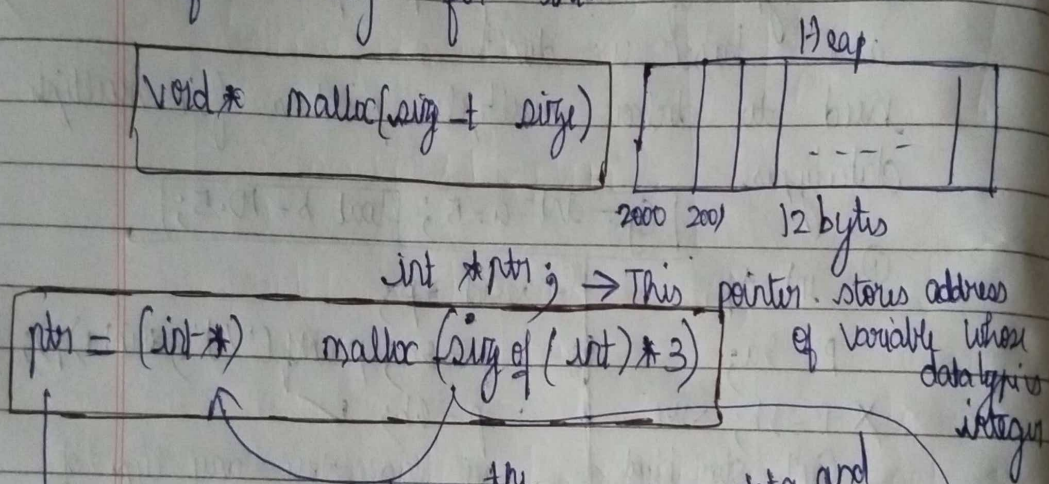 Heap.
void * malloc(size_t size)
2000 2001 12 bytes
int *ptr; → This pointer. stores address
of variable whose
datatype is
integer
ptr = (int *) malloc (size of (int) * 3)
and